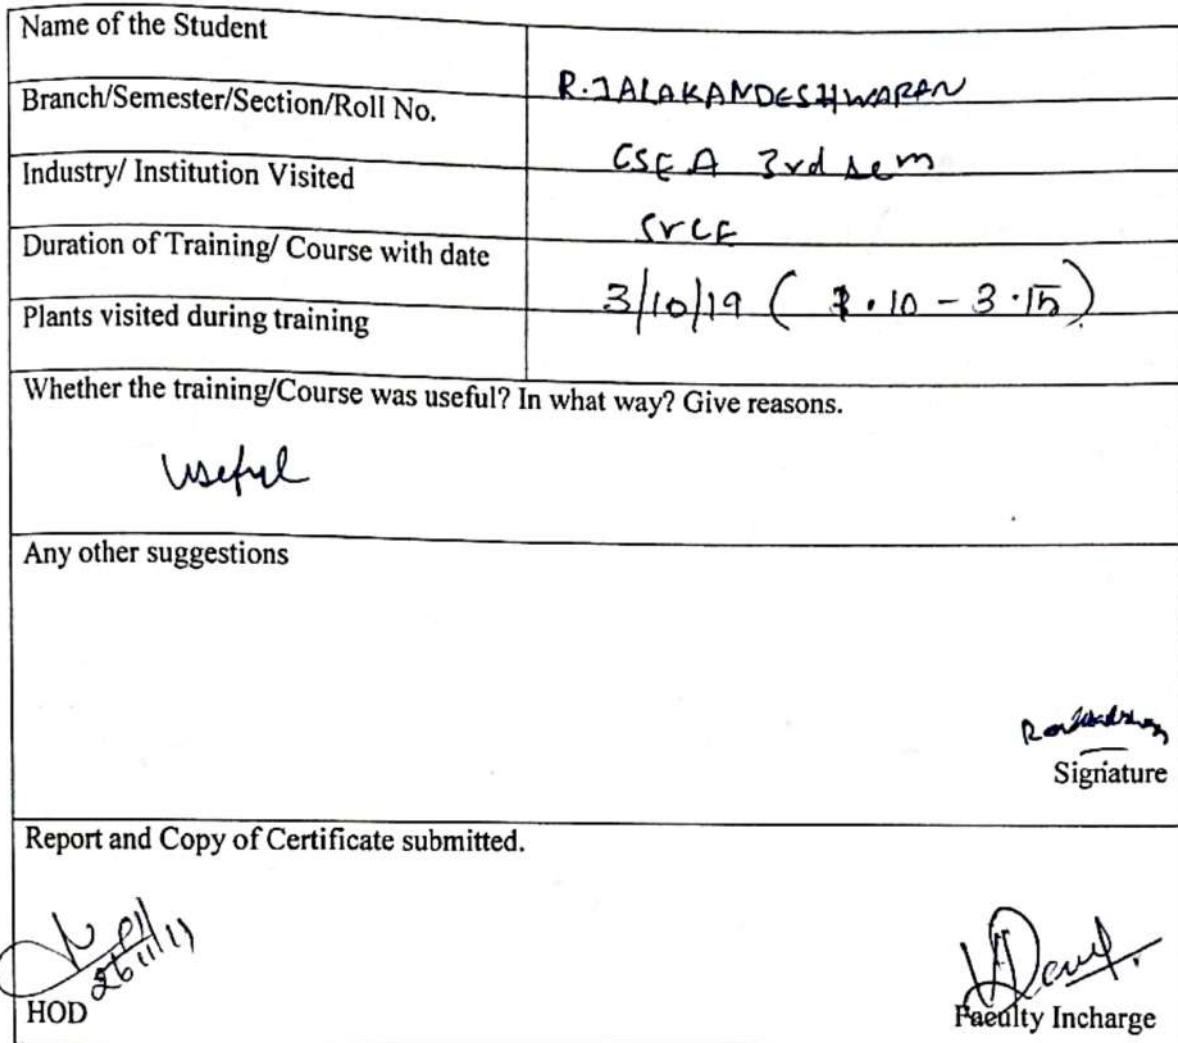 Name of the Student
R. JALAKANDESHWARAN
Branch/Semester/Section/Roll No.
CSE A 3rd sem
Industry/ Institution Visited
SVCE
Duration of Training/ Course with date
3/10/19 ( 1.10 - 3.15)
Plants visited during training
Whether the training/Course was useful? In what way? Give reasons.
Useful
Any other suggestions
Signature
Report and Copy of Certificate submitted.
26/11/19
HOD
Faculty Incharge